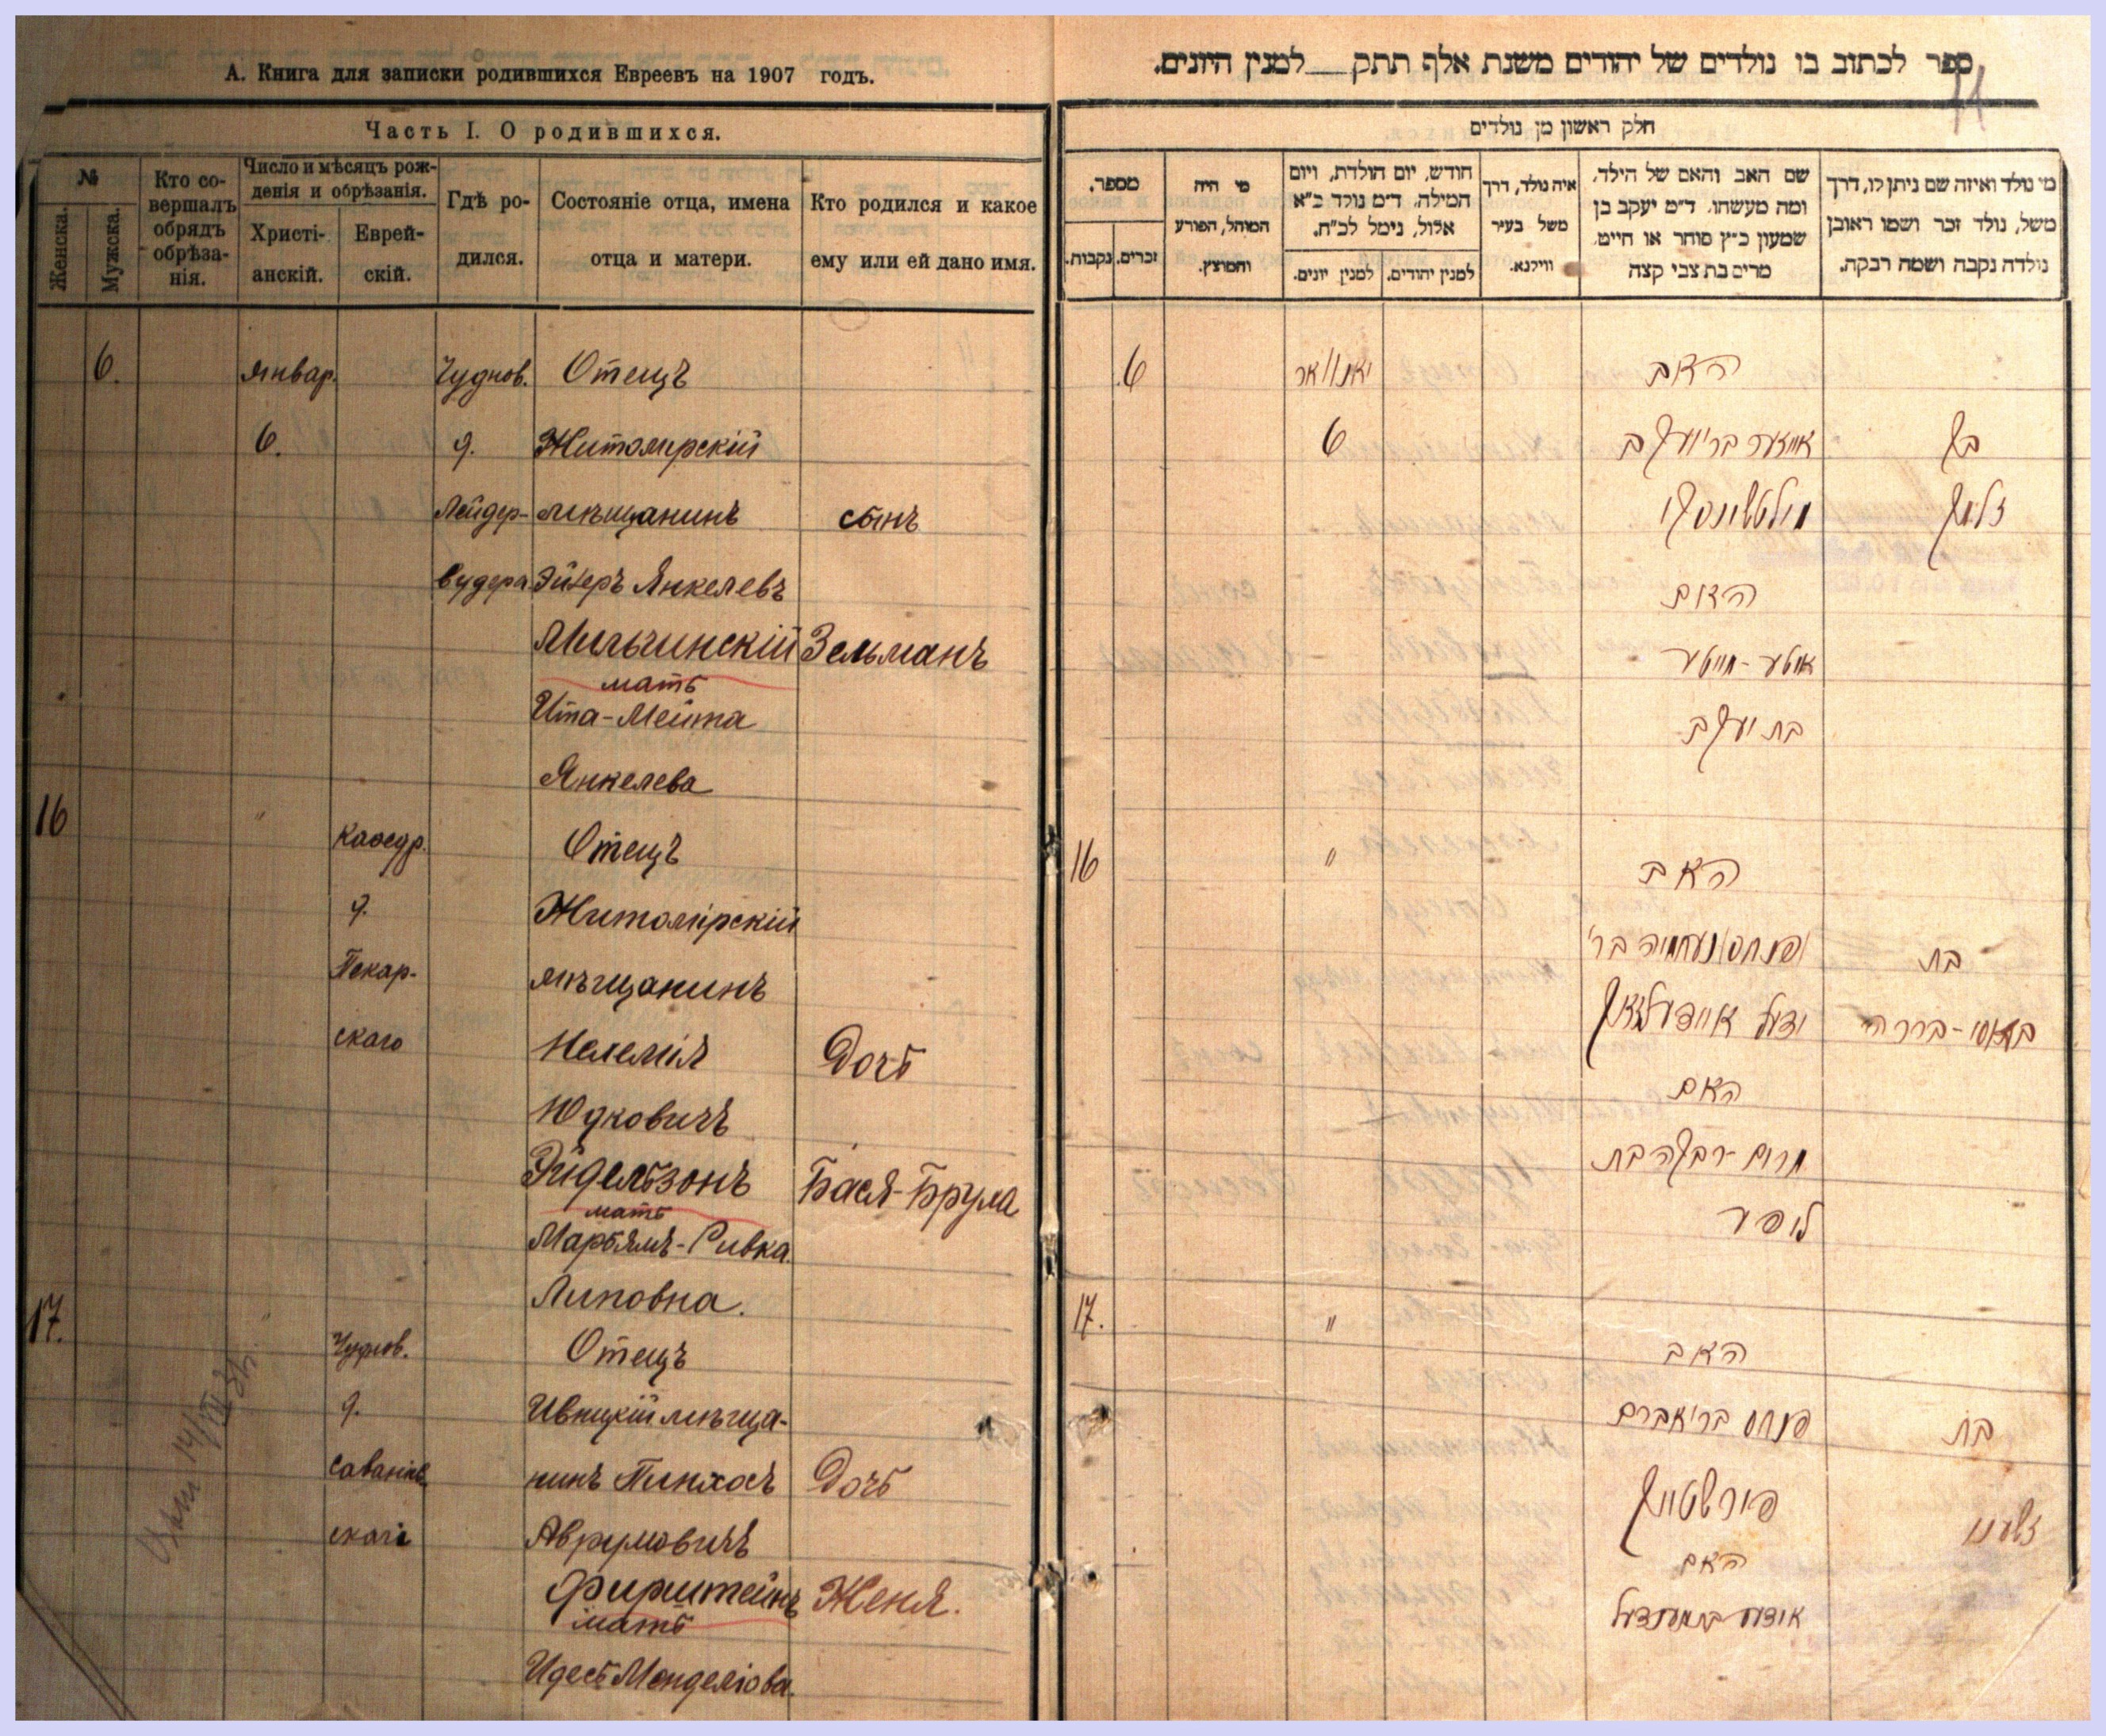 А. Книга для записки родившихся Евреевъ на 1907 годъ.
Часть I. О родившихся.
№
Женска.
Мужска.
Кто со-
вершалъ
обрядъ
обрѣза-
нія.
Число и мѣсяцъ рож-
денія и обрѣзанія.
Христі-
анскій.
Еврей-
скій.
Гдѣ ро-
дился.
Состояніе отца, имена
отца и матери.
Кто родился и какое
ему или ей дано имя.
6. январ. Чуднов. Отецъ
6. д. Житомирскій
Лейдер- мѣщанинъ сынъ
вудера Эйзеръ Янкелевъ
Мильчинскій Зельманъ
мать
Ита-Мейта
Янкелева
16 " Кафедр. Отецъ
д. Житомірскій
Пекар- мѣщанинъ
скаго Нехемія Дочь
Юдковичъ
Эйдельзонъ Бася-Брула
мать
Марьямъ-Ривка
Липовна.
17. " Чуднов. Отецъ
д. Ивницкій мѣща-
нинъ Пинхасъ Дочь
скаго Аврумовичъ
Фирштейнъ Женя.
мать
Идесь Менделіова.
ספר לכתוב בו נולדים של יהודים משנת אלף תתק למנין היונים.
חלק ראשון מן נולדים
מספר.
נקבות.
זכרים.
מי היה
המוהל, הפורע
והמוצץ.
חודש, יום הולדת, ויום
המילה, ד״מ נולד כ״א
אלול, נימל לכ״ח.
למנין יונים.
למנין יהודים.
איה נולד, דרך
משל בעיר
ווילנא.
שם האב והאם של הילד,
ומה מעשהו. ד״מ יעקב בן
שמעון כ״ץ סוחר או חייט,
מרים בת צבי קצה
מי נולד ואיזה שם ניתן לו, דרך
משל, נולד זכר ושמו ראובן
נולדה נקבה ושמה רבקה.
6 יאנואר האב
6 אייזער בר יעקב בן
מילטשינסקי זלמן
האם
איטע-מייטע
בת יעקב
16 " האב
פנחס נעחמיה בר' בת
יודעל איידעלזאן
האם
מרים-רבקה בת
ליפער
17. " האב
פנחס בר אברם בת
פירשטיין
האם